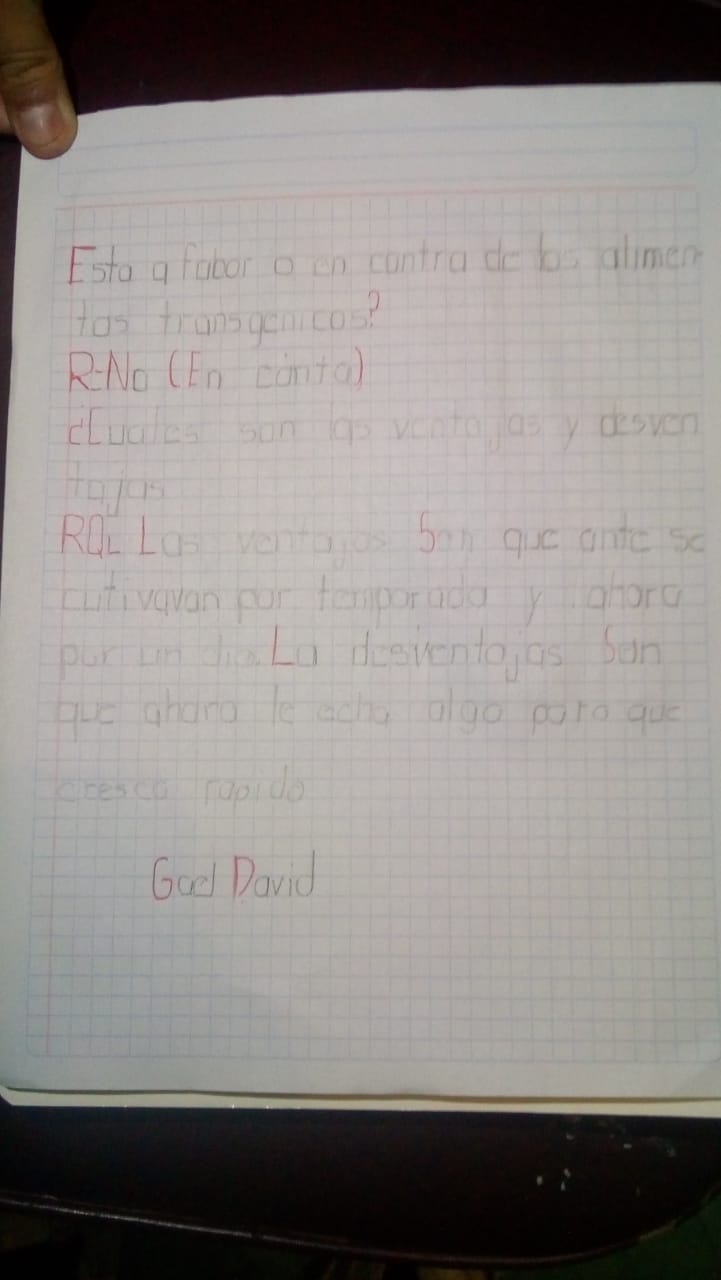 Esta a fabor o en contra de los alimen
tos transgenicos?
R-No (En conta)
¿Cuales son las ventajas y desven
tajas
RQ: Las ventajas Son que ante se
cutivavan por temporada y ahora
por un dia. La desventajas San
que ahora le echa algo para que
cresca rapido
Gael David